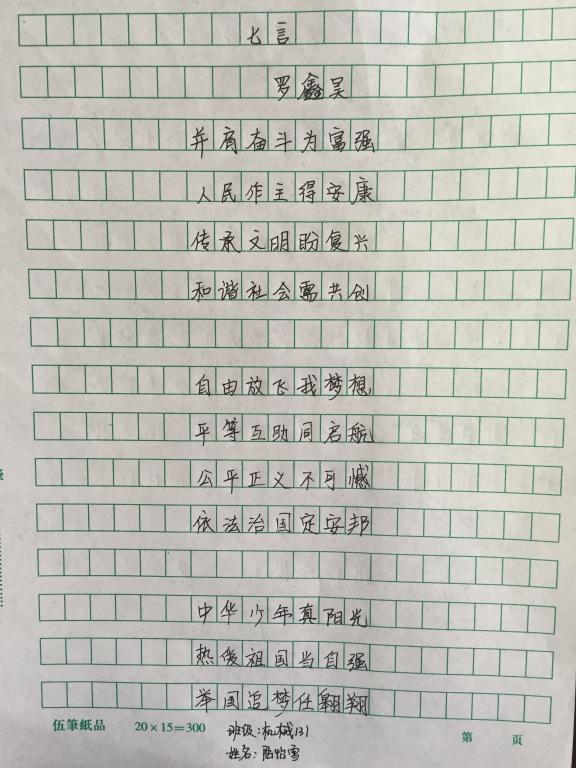 七言
罗鑫昊
并肩奋斗为富强
人民作主得安康
传承文明盼复兴
和谐社会需共创
自由放飞我梦想
平等互助同启航
公平正义不可憾
依法治国定安邦
中华少年真阳光
热爱祖国当自强
举国追梦任翱翔
伍筆紙品 20×15=300 第 页
班级:机械131
姓名: